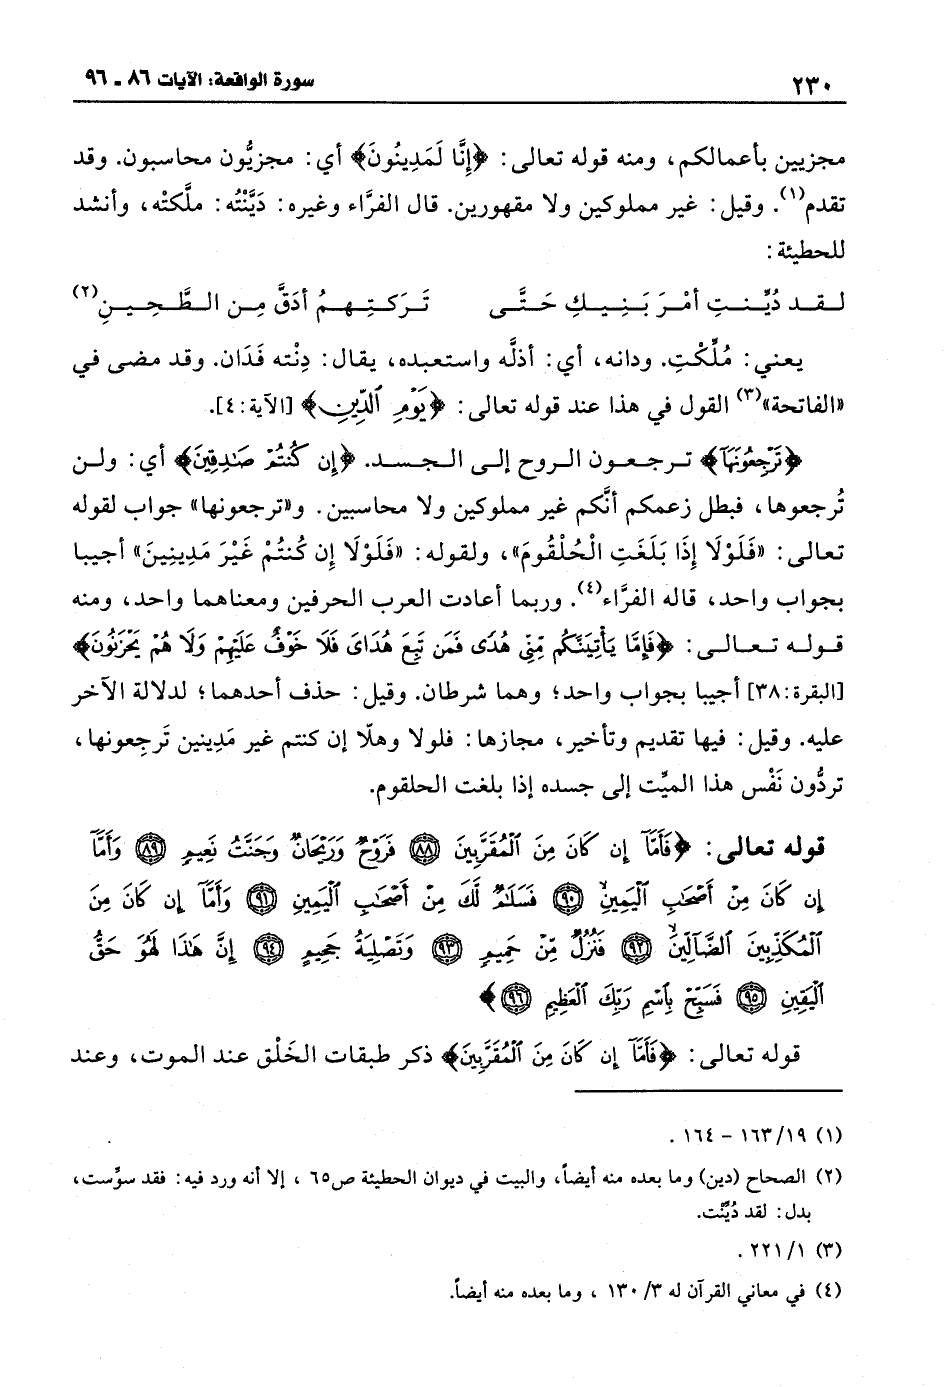 ٢٣٠ سورة الواقعة: الآيات ٨٦ ـ ٩٦
مجزيين بأعمالكم، ومنه قوله تعالى: ﴿إِنَّا لَمَدِينُونَ﴾ أي: مجزيُّون محاسبون. وقد
تقدم(١). وقيل: غير مملوكين ولا مقهورين. قال الفرَّاء وغيره: دَيَّنْتُه: ملَّكته، وأنشد
للحطيئة:
لـقـد دُيِّـنـتِ أمْـرَ بَـنِـيـكِ حَـتَّـى تَـرَكـتِـهـمُ أدَقَّ مِـن الـطَّـحِـيـنِ(٢)
يعني: مُلِّكْتِ. ودانه، أي: أذلَّه واستعبده، يقال: دِنْته فَدَان. وقد مضى في
«الفاتحة»(٣) القول في هذا عند قوله تعالى: ﴿يَوْمِ ٱلدِّينِ﴾ [الآية:٤].
﴿تَرْجِعُونَهَآ﴾ تـرجـعـون الـروح إلـى الـجـسـد. ﴿إِن كُنتُمْ صَٰدِقِينَ﴾ أي: ولـن
تُرجعوها، فبطل زعمكم أنَّكم غير مملوكين ولا محاسبين. و«ترجعونها» جواب لقوله
تعالى: «فَلَوْلَا إِذَا بَلَغَتِ الْحُلْقُومَ»، ولقوله: «فَلَوْلَا إِن كُنتُمْ غَيْرَ مَدِينِينَ» أجيبا
بجواب واحد، قاله الفرَّاء(٤). وربما أعادت العرب الحرفين ومعناهما واحد، ومنه
قـولـه تـعـالـى: ﴿فَإِمَّا يَأْتِيَنَّكُم مِّنِّي هُدًى فَمَن تَبِعَ هُدَايَ فَلَا خَوْفٌ عَلَيْهِمْ وَلَا هُمْ يَحْزَنُونَ﴾
[البقرة:٣٨] أجيبا بجواب واحد؛ وهما شرطان. وقيل: حذف أحدهما؛ لدلالة الآخر
عليه. وقيل: فيها تقديم وتأخير، مجازها: فلولا وهلّا إن كنتم غير مَدِينين تَرجِعونها،
تردُّون نَفْس هذا الميِّت إلى جسده إذا بلغت الحلقوم.
قوله تعالى: ﴿فَأَمَّآ إِن كَانَ مِنَ ٱلْمُقَرَّبِينَ ۝٨٨ فَرَوْحٌ وَرَيْحَانٌ وَجَنَّتُ نَعِيمٍ ۝٨٩ وَأَمَّآ
إِن كَانَ مِنْ أَصْحَٰبِ ٱلْيَمِينِ ۝٩٠ فَسَلَٰمٌ لَّكَ مِنْ أَصْحَٰبِ ٱلْيَمِينِ ۝٩١ وَأَمَّآ إِن كَانَ مِنَ
ٱلْمُكَذِّبِينَ ٱلضَّآلِّينَ ۝٩٢ فَنُزُلٌ مِّنْ حَمِيمٍ ۝٩٣ وَتَصْلِيَةُ جَحِيمٍ ۝٩٤ إِنَّ هَٰذَا لَهُوَ حَقُّ
ٱلْيَقِينِ ۝٩٥ فَسَبِّحْ بِٱسْمِ رَبِّكَ ٱلْعَظِيمِ ۝٩٦﴾
قوله تعالى: ﴿فَأَمَّآ إِن كَانَ مِنَ ٱلْمُقَرَّبِينَ﴾ ذكر طبقات الخَلْق عند الموت، وعند
(١) ١٩/ ١٦٣ - ١٦٤ .
(٢) الصحاح (دين) وما بعده منه أيضاً، والبيت في ديوان الحطيئة ص٦٥ ، إلا أنه ورد فيه: فقد سوِّست،
بدل: لقد دُيِّنْت.
(٣) ١/ ٢٢١ .
(٤) في معاني القرآن له ٣/ ١٣٠ ، وما بعده منه أيضاً.